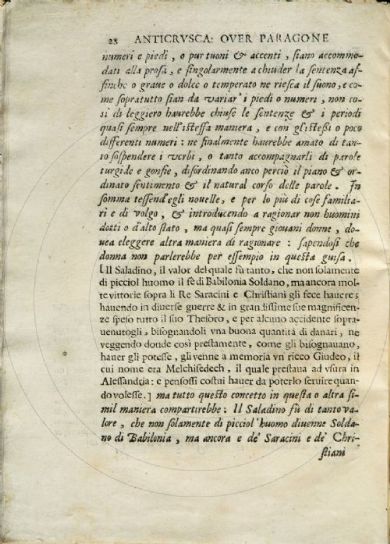 28 ANTICRVSCA: OVER PARAGONE
numeri e piedi, o pur tuoni & accenti, siano accommo-
dati alla prosa, e singolarmente a chiuder la sentenza af-
finche o graue o dolce o temperato ne riesca il suono, e co
me sopratutto sian da variar' i piedi o numeri, non co-
sì di leggiero haurebbe chiuse le sentenze & i periodi
quasi sempre nell'istessa maniera, e con gl'istessi o poco
differenti numeri: ne finalmente haurebbe amato di tan-
to sospendere i verbi, o tanto accompagnarli di parole
turgide e gonfie, disordinando anco perciò il piano & or-
dinato sentimento & il natural corso delle parole. In
somma tessend'egli nouelle, e per lo più di cose familia-
ri e di volgo, & introducendo a ragionar non huomini
dotti o d'alto stato, ma quasi sempre giouani donne, do-
uea eleggere altra maniera di ragionare: sapendosi che
donna non parlerebbe per essempio in questa guisa.
[Il Saladino, il valor del quale fù tanto, che non solamente
di picciol huomo il fè di Babilonia Soldano, ma ancora mol-
te vittorie sopra li Re Saracini e Christiani gli fece hauere;
hauendo in diuerse guerre & in grandissime sue magnificen-
ze speso tutto il suo Thesoro, e per alcuno accidente sopra-
uenutogli, bisognandoli vna buona quantità di danari, ne
veggendo donde così prestamente, come gli bisognauano,
hauer gli potesse, gli venne a memoria vn ricco Giudeo, il
cui nome era Melchisedech, il quale prestaua ad vsura in
Alessandria: e pensossi costui hauer da poterlo seruire quan-
do volesse.] ma tutto questo concetto in questa o altra si-
mil maniera compartirebbe: Il Saladino fù di tanto va-
lore, che non solamente di picciol' huomo diuenne Solda-
no di Babilonia, ma ancora e de' Saracini e de' Chri-
stiani